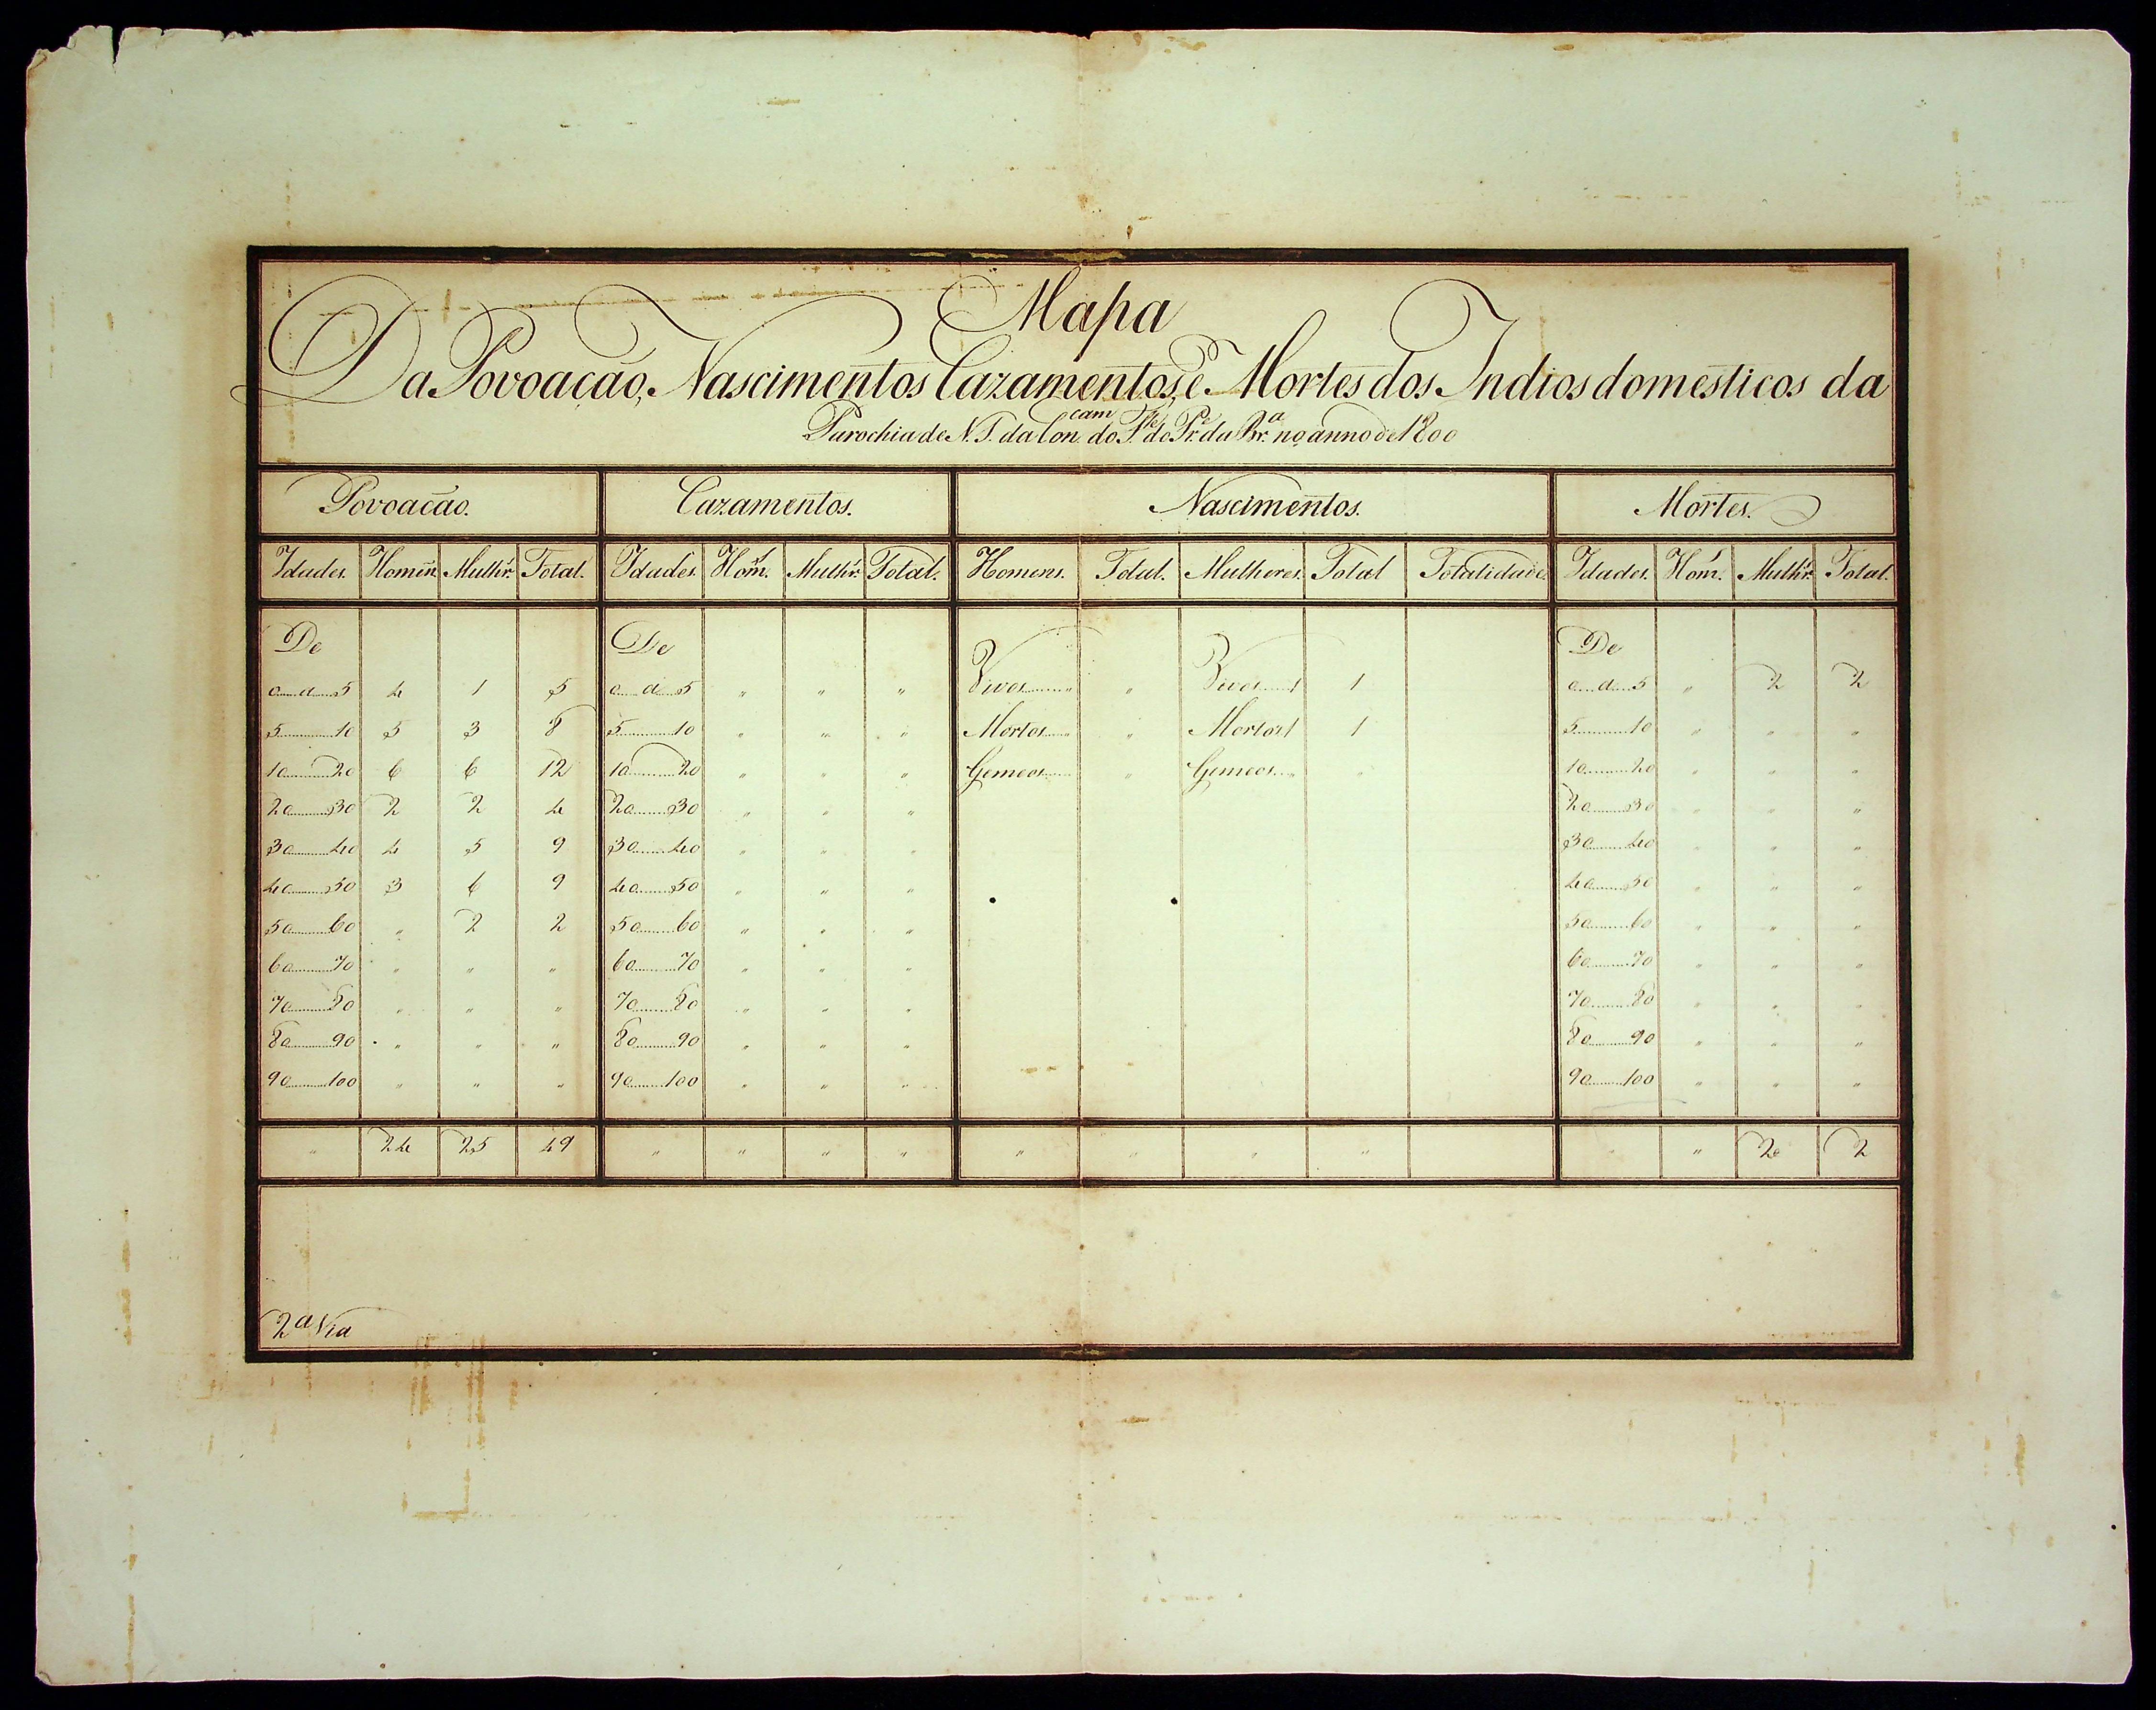 Mapa
Da Povoação, Nascimentos Cazamentos, e Mortes dos Indios domesticos da
Parochia de N. S. da Con.cam do Fte do Pr. da Br.a no anno de 1800
Povoação. Cazamentos. Nascimentos. Mortes.
Idades. Homẽn. Mulhr. Total. Idades. Hom. Mulhr. Total. Homens. Total. Mulheres. Total Totalidade. Idades. Hom. Mulhr. Total.
De De De
0 a 5 4 1 5 0 a 5 " " " Vivos " " Vivos 1 1 0 a 5 " 2 2
5 10 5 3 8 5 10 " " " Mortos " " Mortos 1 1 5 10 " " "
10 20 6 6 12 10 20 " " " Gemeos " " Gemeos " " 10 20 " " "
20 30 2 2 4 20 30 " " " 20 30 " " "
30 40 4 5 9 30 40 " " " 30 40 " " "
40 50 3 6 9 40 50 " " " 40 50 " " "
50 60 " 2 2 50 60 " " " 50 60 " " "
60 70 " " " 60 70 " " " 60 70 " " "
70 80 " " " 70 80 " " " 70 80 " " "
80 90 " " " 80 90 " " " 80 90 " " "
90 100 " " " 90 100 " " " 90 100 " " "
" 24 25 49 " " " " " " " " " " 2 2
2a Via